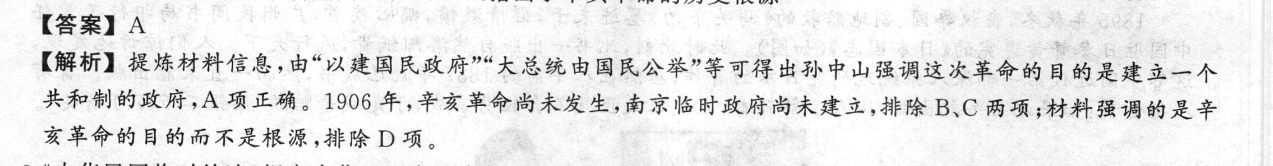 【答案】A
【解析】提炼材料信息,由“以建国民政府”“大总统由国民公举”等可得出孙中山强调这次革命的目的是建立一个
共和制的政府,A 项正确。1906 年,辛亥革命尚未发生,南京临时政府尚未建立,排除 B、C 两项;材料强调的是辛
亥革命的目的而不是根源,排除 D 项。